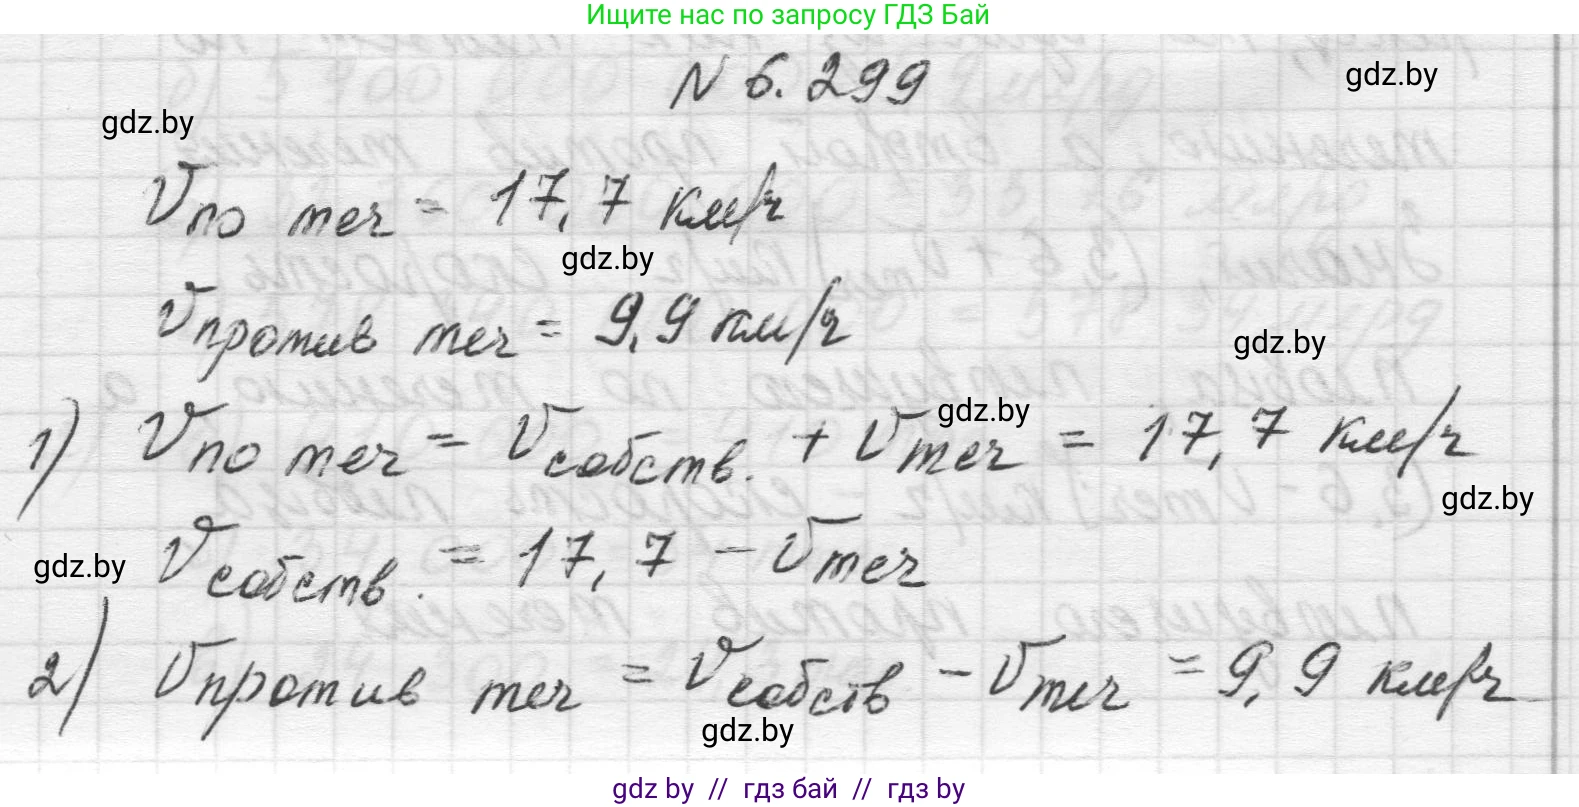 Ищите нас по запросу ГДЗ Бай
N 6. 299
gdz.by
gdz.by
Vпо теч = 17,7 км/ч
gdz.by
Vпротив теч = 9,9 км/ч
gdz.by
gdz.by
1) Vпо теч = Vсобств. + Vтеч = 17,7 км/ч
gdz.by
Vсобств. = 17,7 - Vтеч
gdz.by
2) Vпротив теч = Vсобств - Vтеч = 9,9 км/ч
gdz.by
gdz by // гдз бай // gdz by